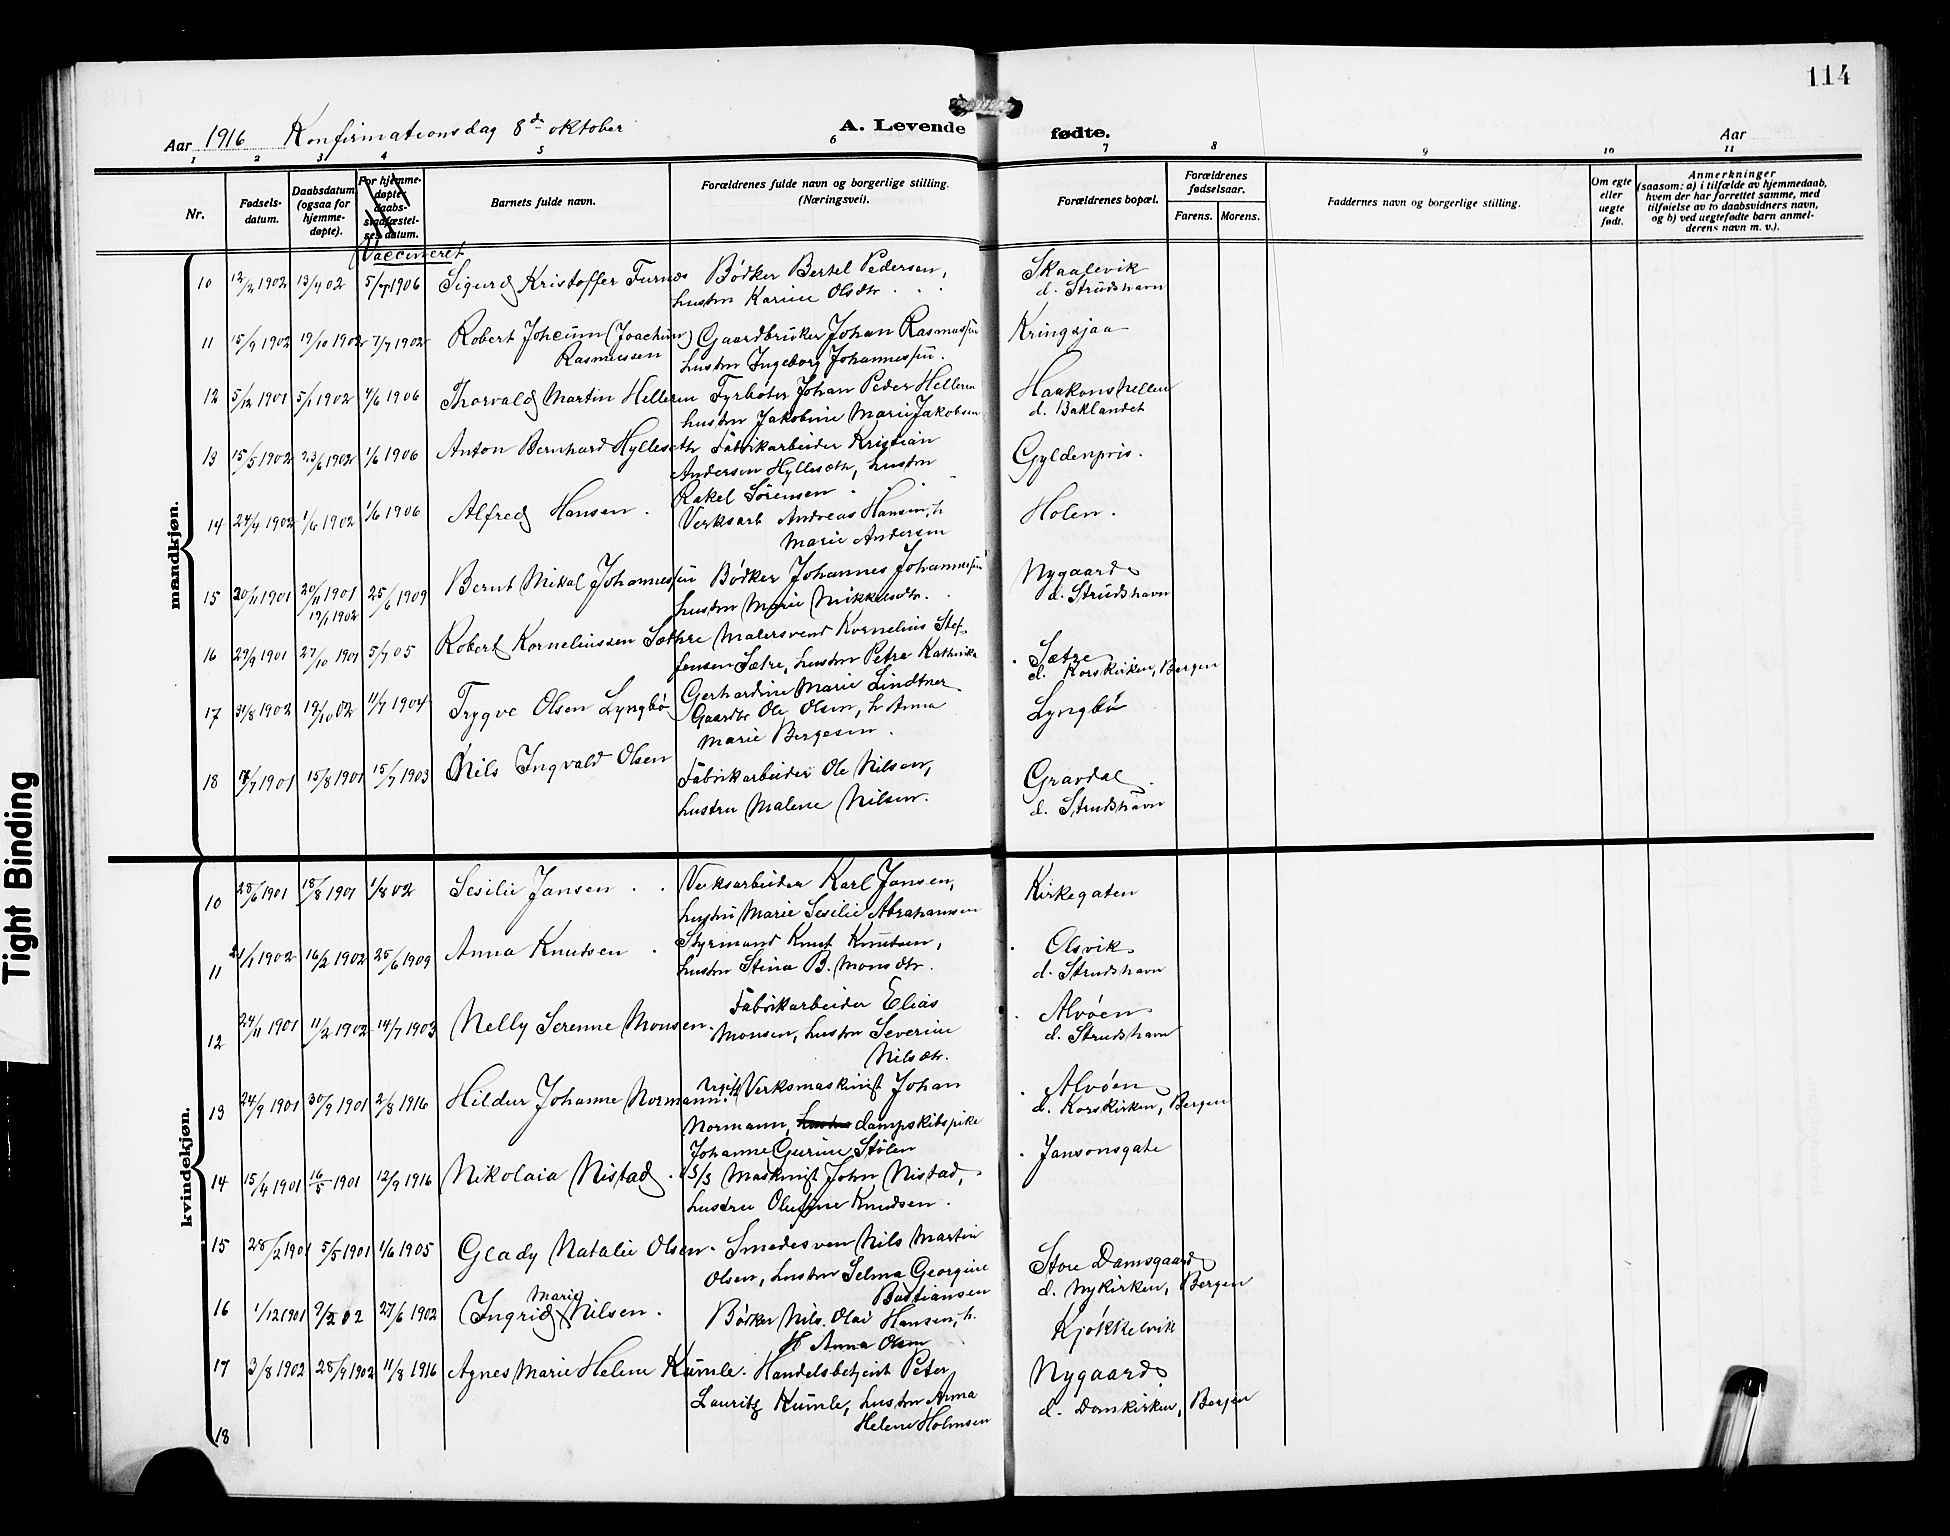 114
Aar 1916 Konfirmationsdag 8de oktober
A. Levende fødte.
Aar
1 2 3 4 5 6 7 8 9 10 11
Nr.
Fødsels-
datum.
Daabsdatum
(ogsaa for
hjemme-
døpte).
For hjemme-
døpte:
daabs-
stadfæstel-
ses datum.
Vaccineret
Barnets fulde navn.
Forældrenes fulde navn og borgerlige stilling.
(Næringsvei).
Forældrenes bopæl.
Forældrenes
fødselsaar.
Farens. Morens.
Faddernes navn og borgerlige stilling.
Om egte
eller
uegte
født.
Anmerkninger
(saasom: a) i tilfælde av hjemmedaab,
hvem der har forrettet samme, med
tilføielse av to daabsvidners navn,
og b) ved uegtefødte barn anmel-
derens navn m. v.).
mandkjøn.
10 12/2 1902 13/4 02 5/7 1906 Sigurd Kristoffer Furnes Bødker Bertel Pedersen, Skaalevik
hustru Karine Olsdtr d. Strudshavn
11 15/9 1902 19/10 1902 7/7 1902 Robert Joheim (Joachim) Gaardbruker Johan Rasmussen Kringsjaa
Rasmussen hustru Ingeborg Johannessen.
12 5/12 1901 5/1 1902 4/6 1906 Thorvald Martin Helleren Fyrbøter Johan Peder Helleren Haakonshellen
hustru Jakobine Marie Jakobsen d. Baklandet
13 15/5 1902 23/6 1902 1/6 1906 Anton Bernhard Hylleseth Fabrikarbeider Kristian Gyldenpris.
Andersen Hylleseth, hustru
Rakel Sørensen
14 24/4 1902 1/6 1902 1/6 1906 Alfred Hansen. Verksarb Andreas Hansen, h Holen.
Marie Andersen
15 20/11 1901 20/11 1901 25/6 1909 Bernt Mikal Johannessen Bødker Johannes Johannessen Nygaard
19/1 1902 hustru Marie Mikkelsdtr. d. Strudshavn
16 29/9 1901 27/10 1901 5/7 05 Robert Korneliussen Sætre Malersvend Kornelius Stef- Sætre
fensen Sætre, hustru Petra Kathrike d. Korskirken, Bergen
Gerhardine Marie Lindtner
17 31/8 1902 19/10 02 11/7 1904 Trygve Olsen Lyngbø Gaardbr Ole Olsen, h Anna Lyngbø
Marie Bergesen.
18 17/7 1901 15/8 1901 15/7 1903 Nils Ingvald Olsen Fabrikarbeider Ole Nilsen, Gravdal
hustru Malene Nilsen. d. Strudshavn
kvindekjøn.
10 28/6 1901 18/8 1901 1/8 02 Sesilie Jansen Verksarbeider Karl Jansen, Kirkegaten
hustru Marie Sesilie Abrahamsen
11 21/1 1902 16/2 1902 25/6 1909 Anna Knutsen Styrmand Knut Knutsen, Olsvik
hustru Stina B. Monsdtr. d. Strudshavn
12 24/11 1901 11/2 1902 14/7 1903 Nelly Serenne Monsen. Fabrikarbeider Elias Alvøen
Monsen, hustru Severine d. Strudshavn
Nilsdtr.
13 24/9 1901 30/9 1901 2/8 1916 Hildur Johanne Normann. Ugift Verksmaskinist Johan Alvøen
Normann, hustru dampskibspike d. Korskirken, Bergen
Johanne Gurine Stølen
14 15/4 1901 16/5 1901 12/9 1916 Nikolaia Nistad. S/S Maskinist John Nistad, Jansonsgate
hustru Olufine Knudsen.
15 28/2 1901 5/5 1901 1/6 1905 Glady Natalie Olsen. Smedesven Nils Martin Store Damsgaard
Olsen, hustru Selma Georgine d. Nykirken, Bergen
Bastiansen
16 1/12 1901 9/2 02 27/6 1902 Ingrid Marie Nilsen. Bødker Nils Olai Hansen, h. Kjøkkelvik
Anna Olsen
17 3/8 1902 28/9 1902 11/8 1916 Agnes Marie Helene Kümle. Handelsbetjent Peter Nygaard
Lauritz Kümle, hustru Anna d. Domkirken, Bergen
Helene Holmsen
18
Tight Binding